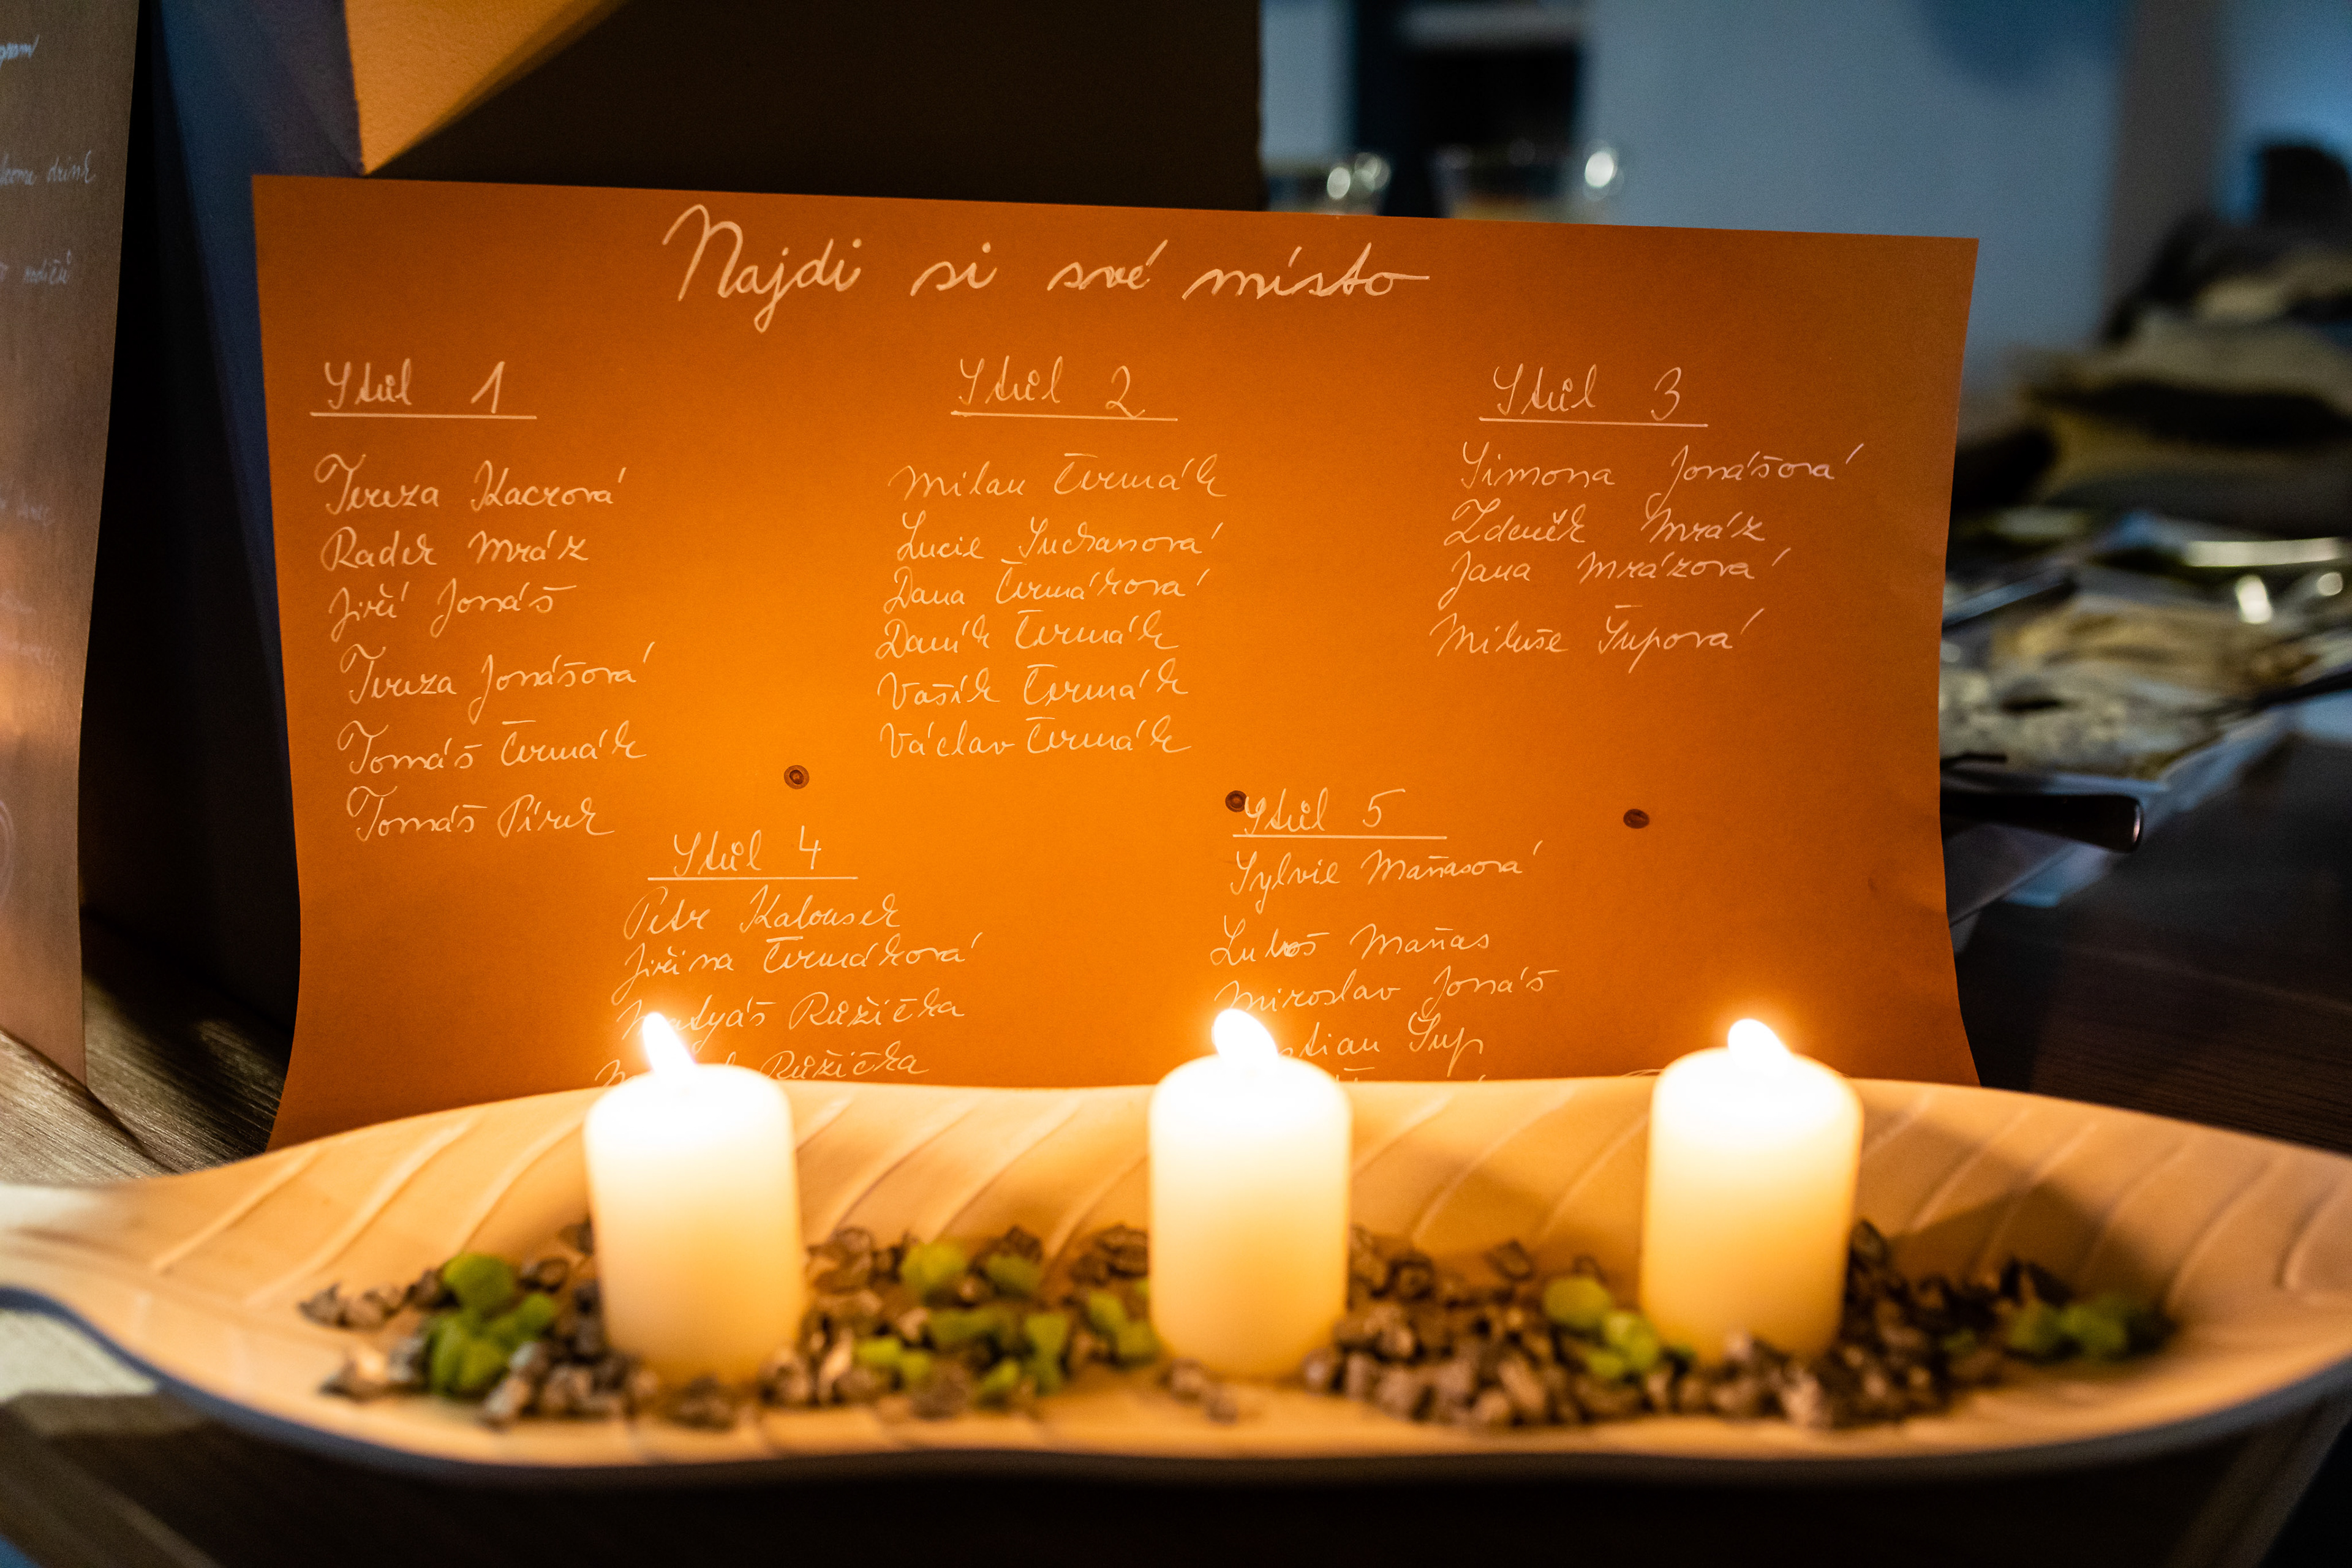 Najdi si své místo
Stůl 1
Tereza Kacrová
Radek Mráz
Jiří Jonáš
Tereza Jonášová
Tomáš Čermák
Tomáš Pírek
Stůl 2
Milan Čermák
Lucie Suchanová
Dana Čermáková
Daník Čermák
Vašík Čermák
Václav Čermák
Stůl 3
Simona Jonášová
Zdeněk Mráz
Jana Mrázová
Miluše Šupová
Stůl 4
Petr Kalousek
Jiřina Čermáková
Matyáš Růžička
Růžička
Stůl 5
Sylvie Maňasová
Luboš Maňas
Miroslav Jonáš
stian Šup
drink
rodičů